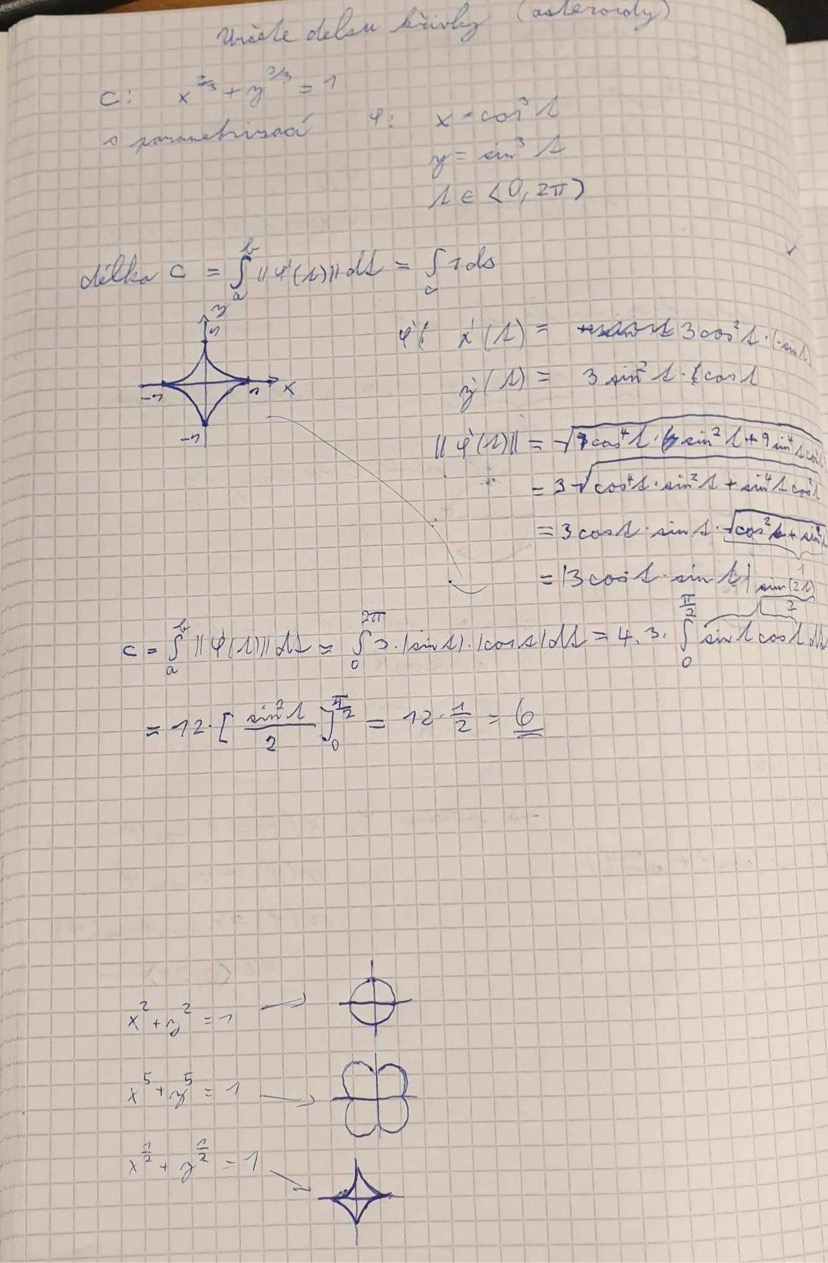 Určete délku křivky (asteroidy)
C: x^{2/3} + y^{2/3} = 1
s parametrizací φ: x = cos³ t
y = sin³ t
t ∈ <0, 2π)
délka C = ∫_a^b ||φ'(t)|| dt = ∫_C 1 ds
y
1
-1 1 x
-1
φ': x'(t) = 3 cos² t · (-sin t)
y'(t) = 3 sin² t · cos t
||φ'(t)|| = √(9 cos⁴ t · sin² t + 9 sin⁴ t cos² t
= 3 √(cos⁴ t · sin² t + sin⁴ t cos² t
= 3 cos t · sin t · √(cos² t + sin² t
1
= |3 cos t · sin t|
sin(2t)/2
C = ∫_a^b ||φ'(t)|| dt = ∫_0^{2π} 3 · |sin t| · |cos t| dt = 4 · 3 · ∫_0^{π/2} sin t cos t dt
= 12 · [sin² t / 2]_0^{π/2} = 12 · 1/2 = 6
x² + y² = 1
x⁵ + y⁵ = 1
x^{1/2} + y^{1/2} = 1